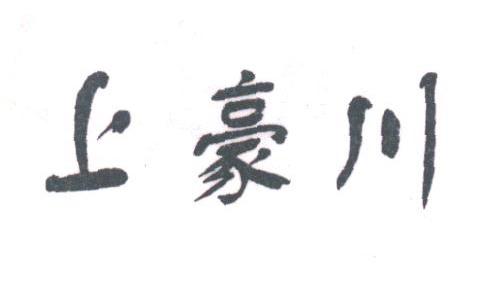 上豪川